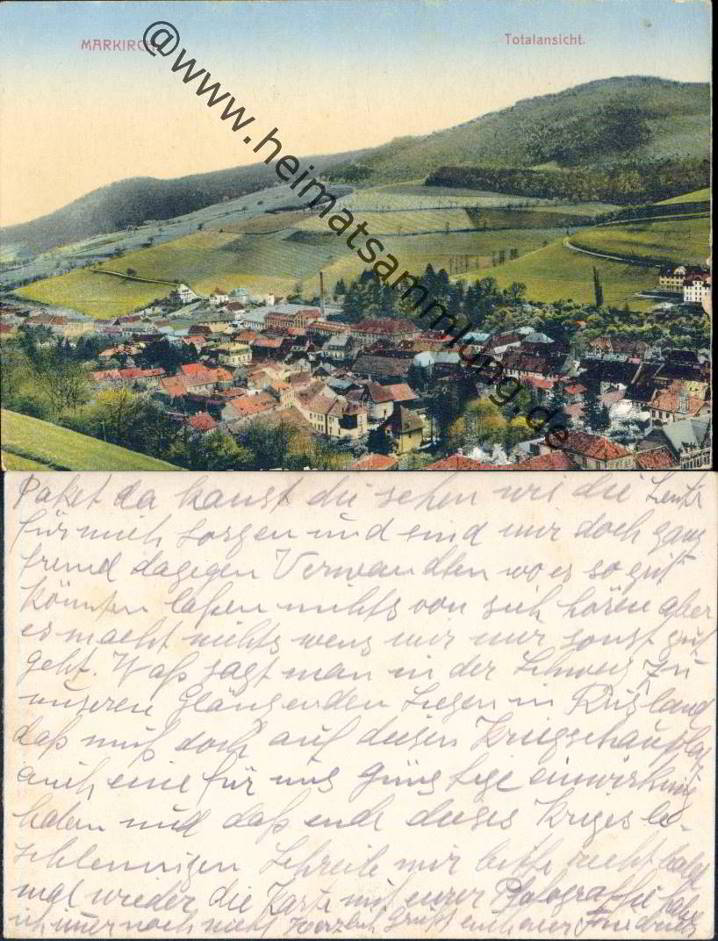 MARKIRCH
Totalansicht.
@www.heimatsammlung.de
Paket da kanst du sehen wie die Leute
für mich sorgen und sind mir doch ganz
fremd dagegen Verwandten wo es so gut
könnten laßen nichts von sich hören aber
es macht nichts wens mir nur sonst gut
geht. Waß sagt man in der Schweiz zu
unseren Glänzenden Siegen in Rußland
daß muß doch auf diesen Kriegschauplatz
auch eine für uns günstige einwirkung
haben und daß ende dieses Kriges be-
schleunigen Schreibe mir bitte recht bald
mal wieder die Karte mit eurer Photografie habe
ich immer noch nicht Herzlich Grüßt euch euer Friedrich